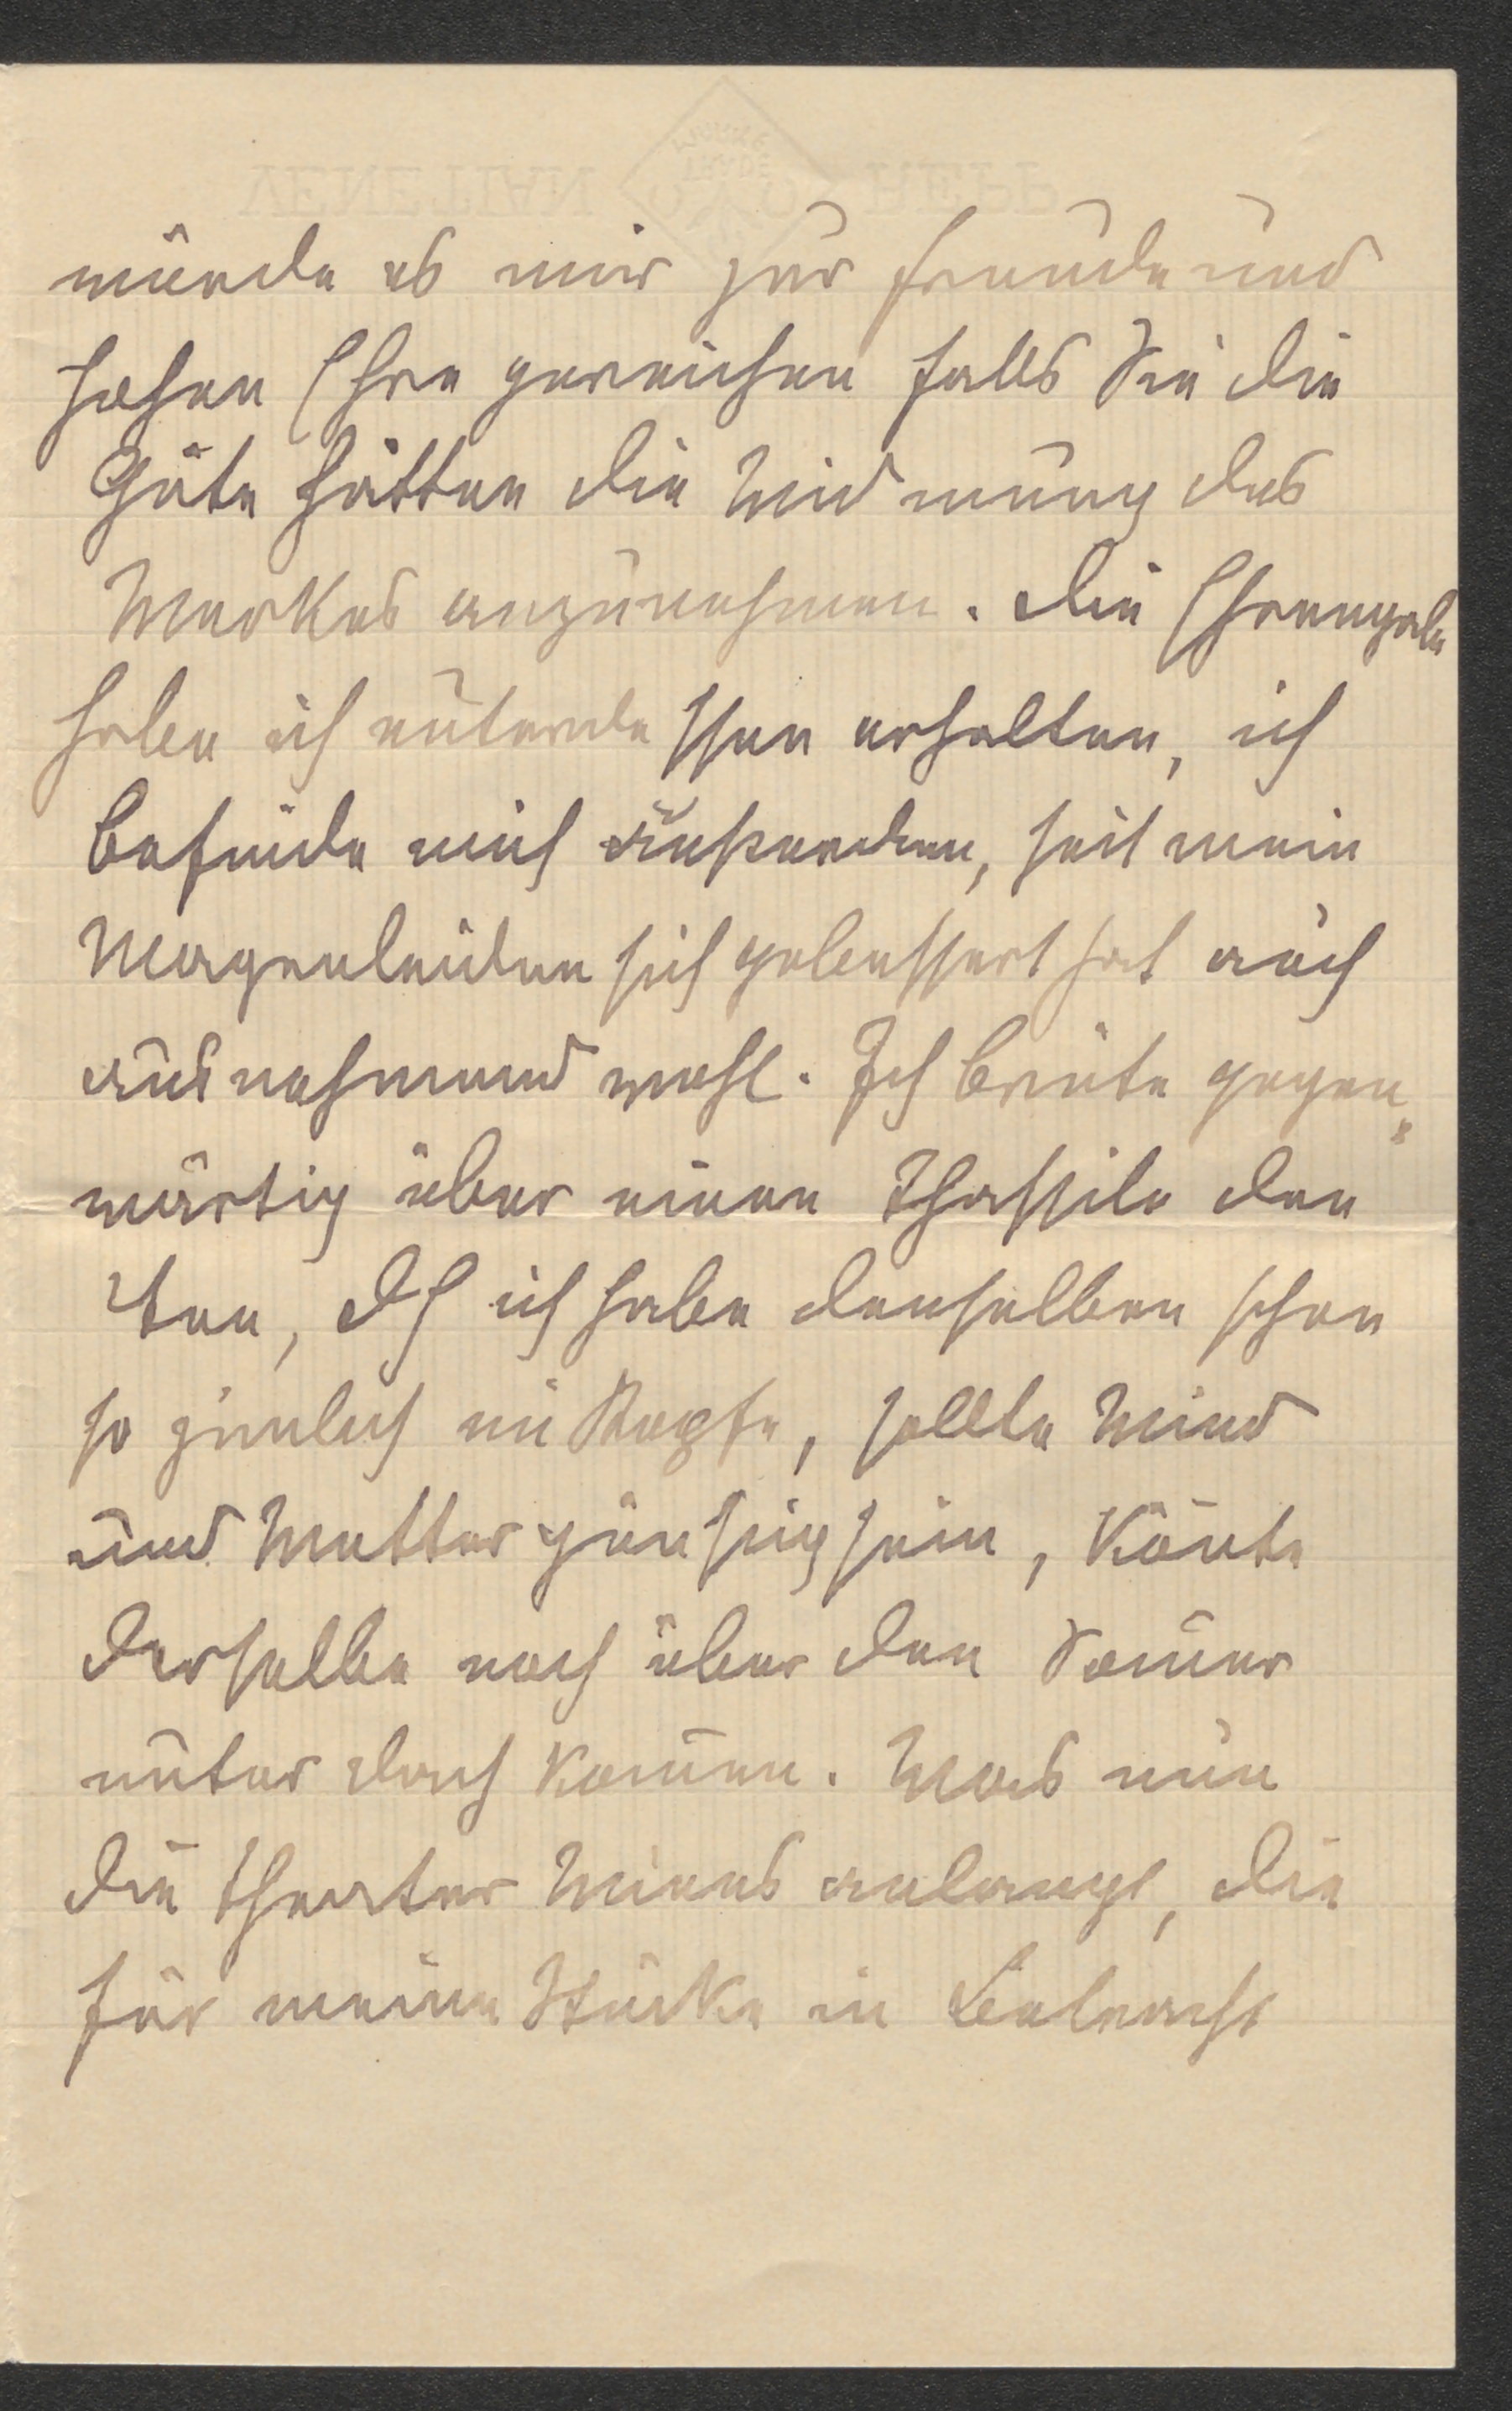 VENETIAN REPP
würde es mir zur Freude und
hohen Ehre gereichen falls Sie die
Güte hätten die Widmung des
Werkes anzunehmen. Die Ehrengabe
habe ich unterdessen erhalten, ich
befinde mich außerdem, seit mein
Magenleiden sich gebessert hat auch
ausnehmend wohl. Ich brüte gegen„
wärtig über einen Thassilo den
ten, dh ich habe denselben schon
so zimlich im Kopfe, sollte Wind
und Wetter günstig sein, könte
derselbe noch über den Som̅er
unter dach kom̅en. Was nun
die theater Wiens anlangt, die
für meine Stücke in Betracht